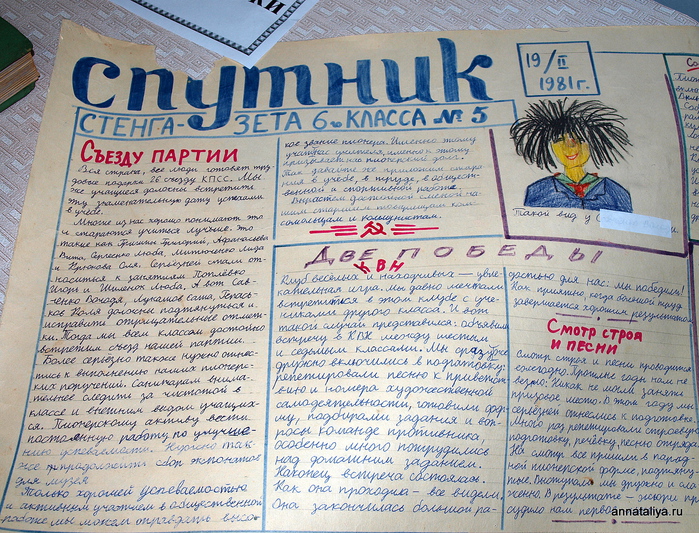 КИ
СПУТНИК
СТЕНГА-ЗЕТА 6 в КЛАССА № 5
19/II
1981 г.
СЪЕЗДУ ПАРТИИ
Вся страна, все люди готовят тру-
довые подарки 26 съезду КПСС. Мы
же учащиеся должны встретить
эту знаменательную дату успехами
в учебе.
Многие из нас хорошо понимают это
и стараются учиться лучше. Это
такие как Гришин Григорий, Афанасьева
Вита, Сергиенко Люба, Митюченко Лида
и Крюкова Оля. Серьёзней стали от-
носиться к занятиям Поплёвко
Игорь и Шиленок Люба. А вот Сав-
ченко Володя, Лукашов Саша, Герась-
ков Коля должны подтянуться и
исправить отрицательные отмет-
ки. Тогда мы всем классом достойно
встретим съезд нашей партии.
Более серьёзно также нужно отнес-
тись к выполнению наших пионерс-
ких поручений. Санитарам внима-
тельнее следить за чистотой в
классе и внешним видом учащих-
ся. Пионерскому активу вести
постоянную работу по улучше-
нию успеваемости. Нужно так-
же продолжить сбор экспонатов
для музея
Только хорошей успеваемостью
и активным участием в общественной
работе мы можем оправдать высо-
кое звание пионера. Именно этому
учат нас учителя, именно к этому
призывает нас пионерский долг.
Так давайте же приложим стара-
ния в учебе, в труде, в обществ-
венной и спортивной работе.
Вырастем достойной сменой на-
шим старшим товарищам ком-
сомольцам и коммунистам.
Такой вид у С
ДВЕ ПОБЕДЫ
КВН
Клуб весёлых и находчивых – увле-
кательная игра. Мы давно мечтали
встретиться в этом клубе с уче-
никами другого класса. И вот
такой случай представился: объявили
встречу в КВН между шестым
и седьмым классами. Мы сразу же
дружно включились в подготовку:
репетировали песню к приветст-
вию и номера художественной
самодеятельности, готовили фор-
му, подбирали задания и воп-
росы команде противника,
особенно много потрудились
над домашним заданием.
Наконец встреча состоялась.
Как она проходила – все видели.
Она закончилась большой ра-
достью для нас: мы победили!
Как приятно, когда большой труд
завершается хорошим результатом
СМОТР СТРОЯ
И ПЕСНИ
Смотр строя и песни проводится
ежегодно. Прошлые годы нам не
везло: никак не могли занять
призовое место. В этом году мы
серьёзней отнеслись к подготовке.
Много раз репетировали строевую
подготовку, речёвку, песню отряда.
На смотр все пришли в парад-
ной пионерской форме, подтяну-
тые. Выступали мы дружно и сла-
женно. В результате – жюри при-
судило нам первое
annataliya.ru